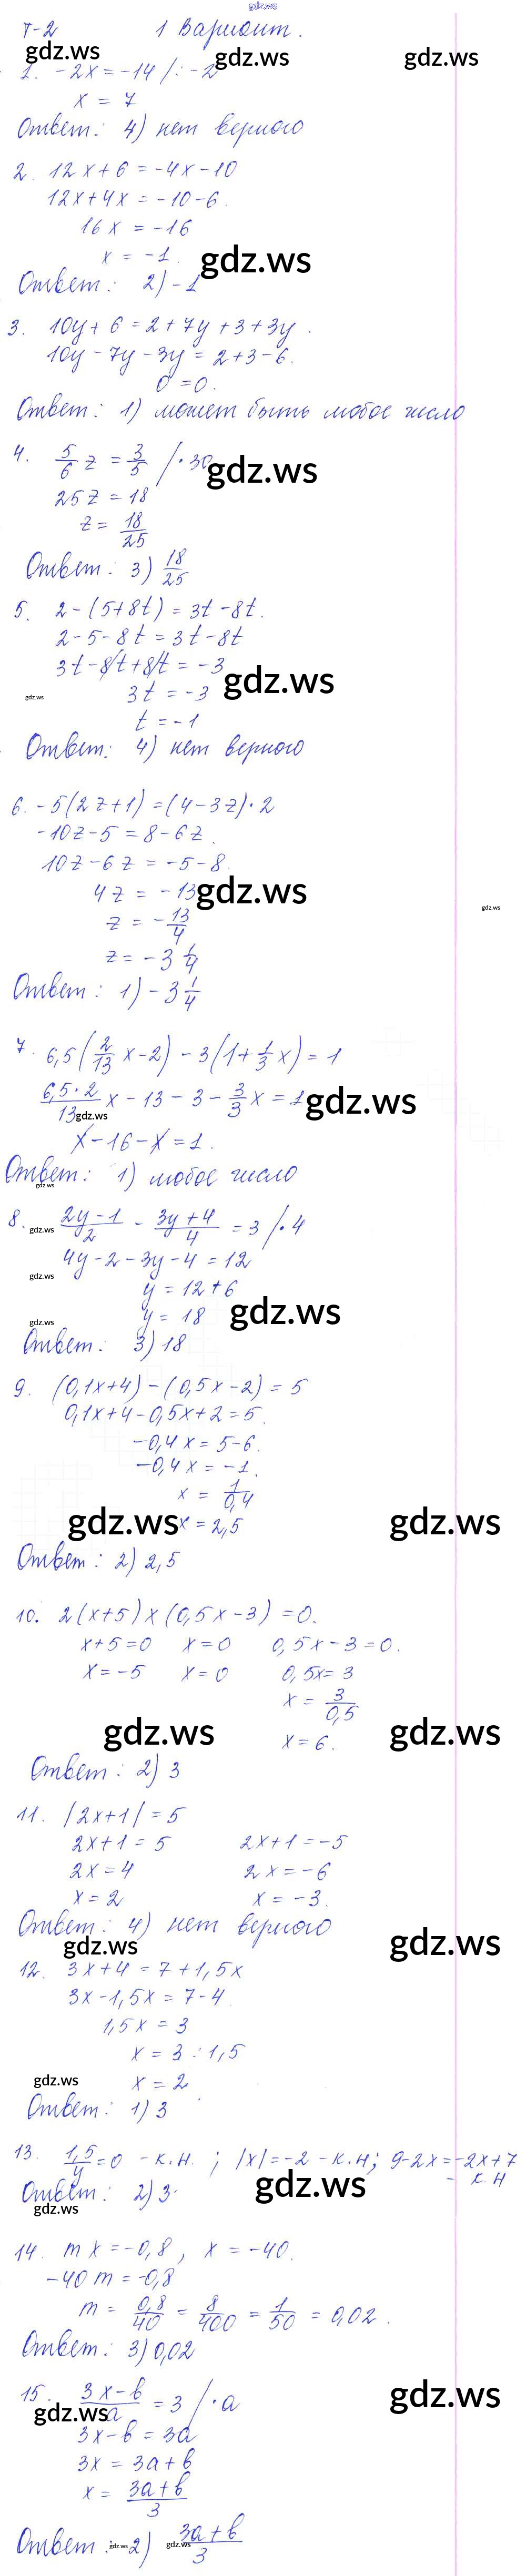 gdz.ws
Т-2 1 Вариант.
gdz.ws gdz.ws gdz.ws
1. -2x = -14 /: -2
x = 7
Ответ: 4) нет верного
2. 12x + 6 = -4x - 10
12x + 4x = -10 - 6.
16x = -16
x = -1.
gdz.ws
Ответ: 2) -1
3. 10y + 6 = 2 + 7y + 3 + 3y.
10y - 7y - 3y = 2 + 3 - 6.
0 = 0.
Ответ: 1) может быть любое число
4. 5/6 z = 3/5 / · 30
gdz.ws
25z = 18
z = 18/25
Ответ: 3) 18/25
5. 2 - (5 + 8t) = 3t - 8t.
2 - 5 - 8t = 3t - 8t
3t - 8t + 8t = -3
gdz.ws
gdz.ws 3t = -3
t = -1
Ответ: 4) нет верного
6. -5(2z + 1) = (4 - 3z) · 2
-10z - 5 = 8 - 6z.
10z - 6z = -5 - 8.
4z = -13
gdz.ws
gdz.ws
z = -13/4
z = -3 1/4
Ответ: 1) -3 1/4
7. 6,5(2/13 x - 2) - 3(1 + 1/3 x) = 1
6,5·2/13 x - 13 - 3 - 3/3 x = 1
gdz.ws
gdz.ws
x - 16 - x = 1.
Ответ: 1) любое число
gdz.ws
8. 2y - 1/2 - 3y + 4/4 = 3 / · 4
gdz.ws
4y - 2 - 3y - 4 = 12
gdz.ws
y = 12 + 6
y = 18
gdz.ws gdz.ws
Ответ: 3) 18
9. (0,1x + 4) - (0,5x - 2) = 5
0,1x + 4 - 0,5x + 2 = 5.
-0,4x = 5 - 6.
-0,4x = -1.
x = 1/0,4
gdz.ws gdz.ws
x = 2,5
Ответ: 2) 2,5
10. 2(x + 5) x (0,5x - 3) = 0.
x + 5 = 0 x = 0 0,5x - 3 = 0.
x = -5 x = 0 0,5x = 3
x = 3/0,5
gdz.ws gdz.ws
x = 6.
Ответ: 2) 3
11. |2x + 1| = 5
2x + 1 = 5 2x + 1 = -5
2x = 4 2x = -6
x = 2 x = -3.
Ответ: 4) нет верного
gdz.ws gdz.ws
12. 3x + 4 = 7 + 1,5x
3x - 1,5x = 7 - 4
1,5x = 3
x = 3 : 1,5
gdz.ws x = 2
Ответ: 1) 3
13. 1,5/y = 0 - к.н. ; |x| = -2 - к.н; 9 - 2x = -2x + 7
- к.н
gdz.ws
Ответ: 2) 3
gdz.ws
14. mx = -0,8, x = -40.
-40m = -0,8
m = 0,8/40 = 8/400 = 1/50 = 0,02.
Ответ: 3) 0,02
15. 3x - b/a = 3 / · a
gdz.ws gdz.ws
3x - b = 3a
3x = 3a + b
x = 3a + b/3
Ответ: 2) 3a + b/3
gdz.ws gdz.ws